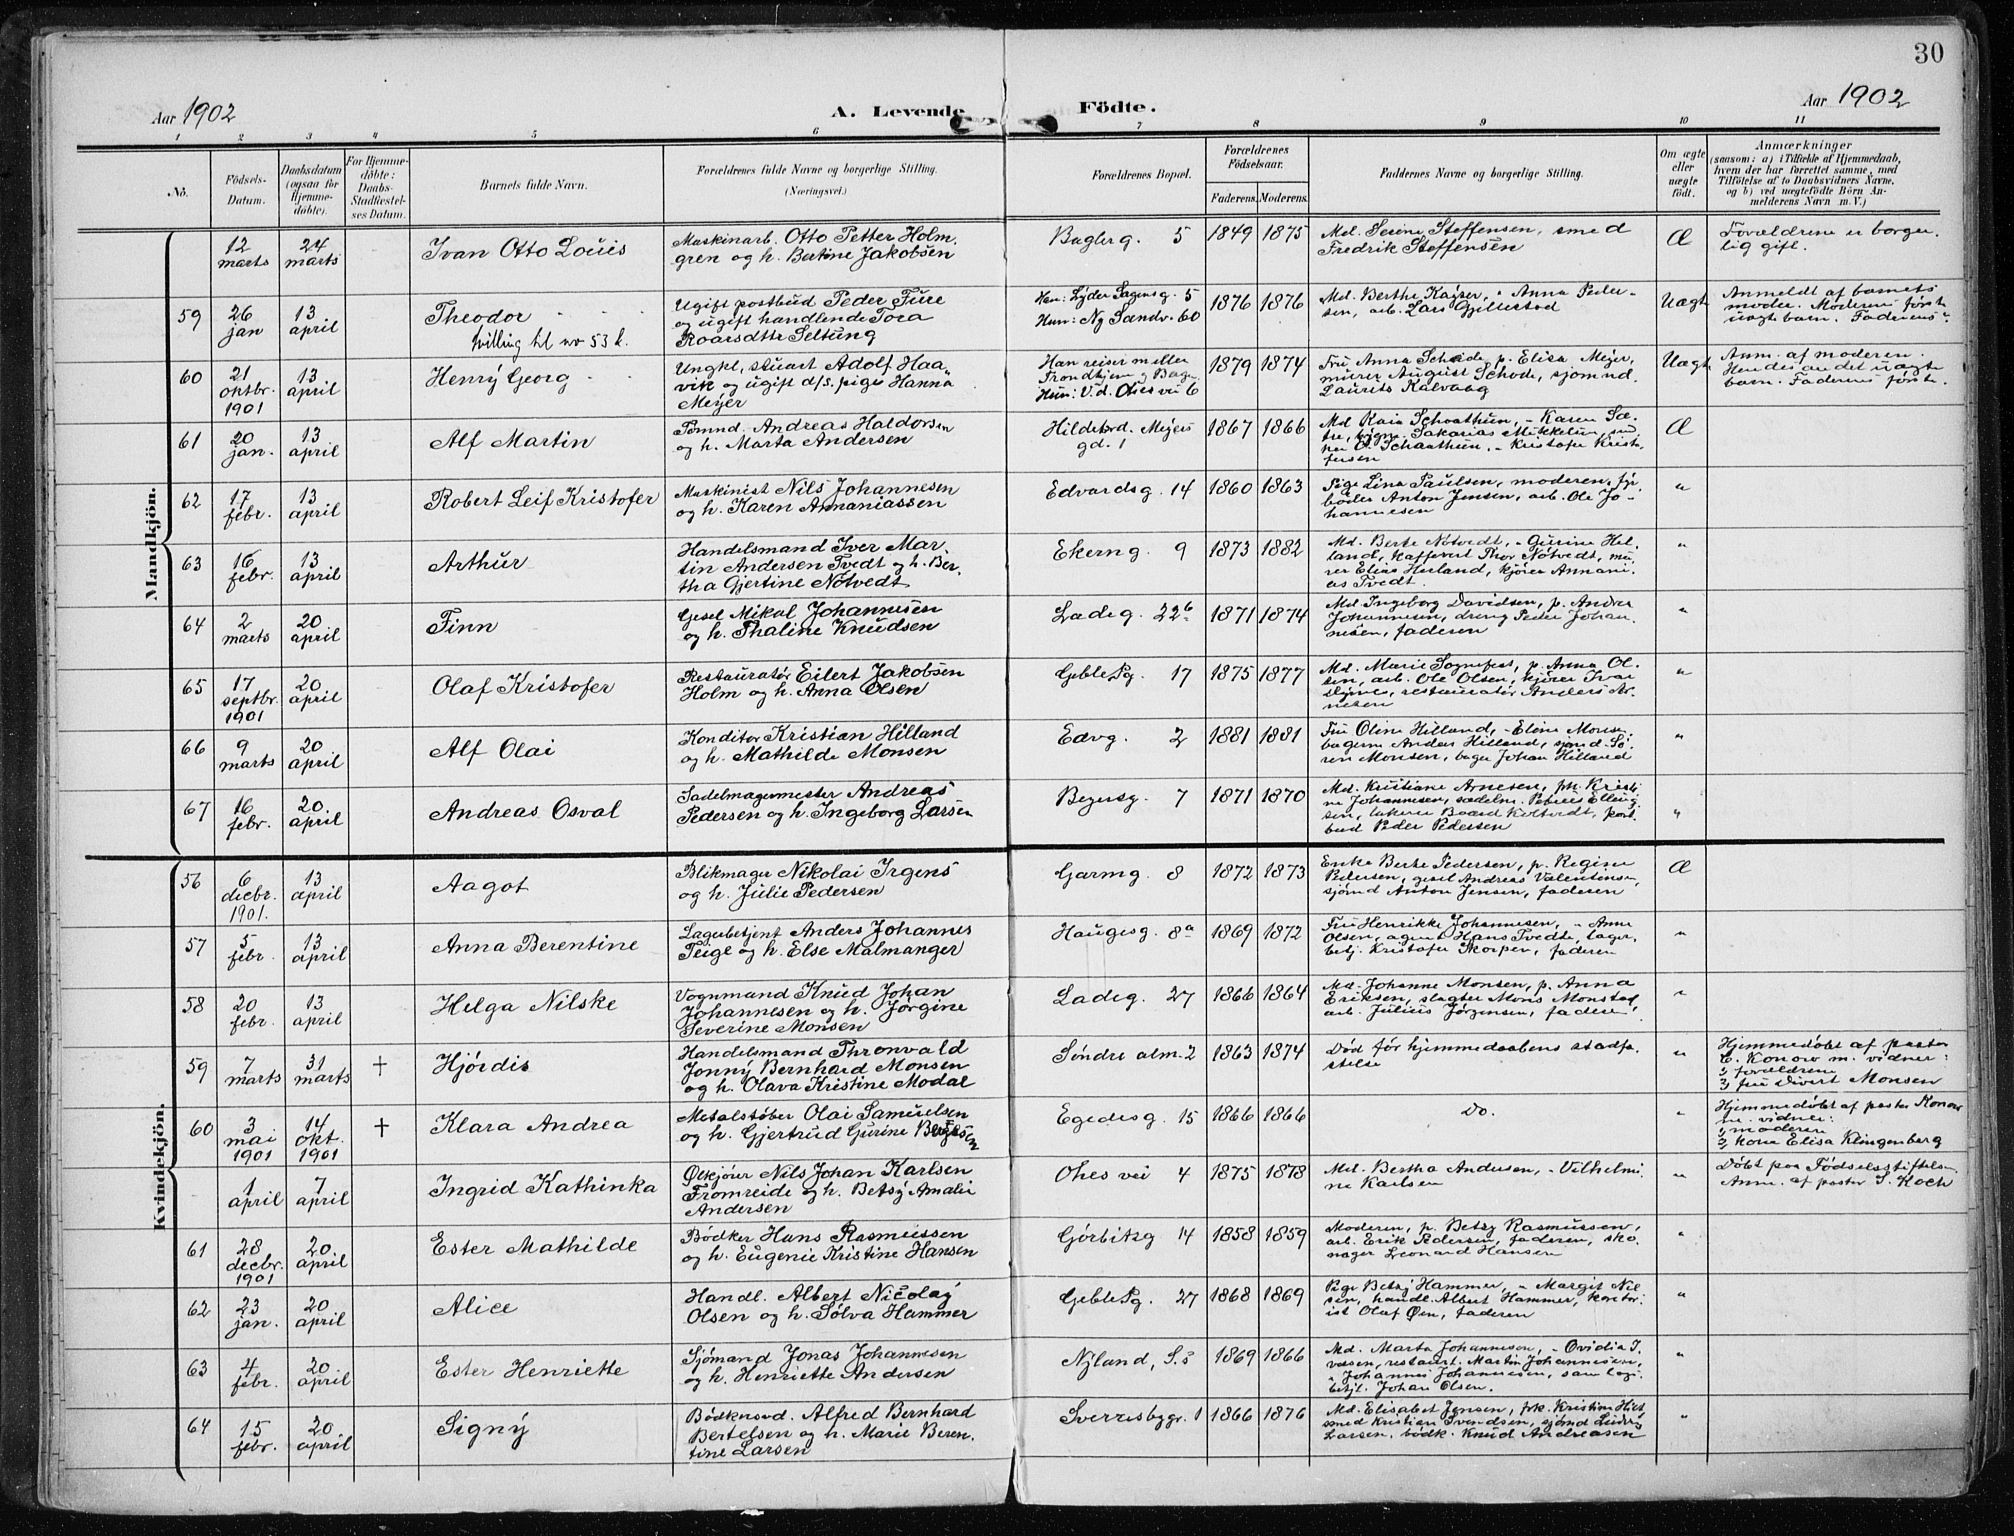 30
Aar 1902 A. Levende Födte. Aar 1902
1 2 3 4 5 6 7 8 9 10 11
No. Födsels-Datum. Daabsdatum (ogsaa for Hjemmedöbte). For Hjemmedöbte: Daabs-Stadfæstelses Datum. Barnets fulde Navn. Forældrenes fulde Navne og borgerlige Stilling. (Næringsvei.) Forældrenes Bopæl. Forældrenes Födselsaar. Faderens. Moderens. Faddernes Navne og borgerlige Stilling. Om ægte eller uægte födt. Anmærkninger (saasom: a) i Tilfælde af Hjemmedaab, hvem der har forrettet samme, med Tilföielse af to Daabsvidners Navne, og b) ved uægtefödte Börn Anmelderens Navn m. V.)
Mandkjön.
12 marts 24 marts Ivan Otto Louis Maskinarb. Otto Petter Holmgren og h. Bertine Jakobsen Bagerg. 5 1849 1875 Md. Serine Steffensen, smed Fredrik Steffensen Æ Forældrene er borgerlig gift.
59 26 jan 13 april Theodor tvilling til no 53 k. Ugift postbud Peder Fure og ugift handlende Tora Roarsdttr Seltung Han: Lyder Sagensg. 5 Hun: Ny Sandv. 60 1876 1876 Md. Berthe Kayser, " Anna Pedersen, arb. Lars Gjellestad Uægt Anmeldt af barnets moder. Moderens første uægte barn. Faderens "
60 21 oktbr. 1901 13 april Henry Georg Ungkl. stuart Adolf Haavik og ugift d/s. pige Hanna Meyer Han reiser mellem Trondhjem og Bergen Hun: V. d. Ohes vei 6 1879 1874 Fru Anna Schøde, p. Elisa Meyer, murer August Schøde, sjømnd. Laurits Kalvaag Uægt Anm. af moderen. Hendes andet uægte barn. Faderens første.
61 20 jan. 13 april Alf Martin Tømnd. Andreas Haldorsen og h. Marta Andersen Hildebrd. Meyers gd. 1 1867 1866 Md Kaia Schaathun, " Karen Sætre, Sakarias Mikkelsen, O. Schaathun, " Kristofer Kristofersen Æ
62 17 febr. 13 april Robert Leif Kristofer Maskinist Nils Johannesen og h. Karen Annaniassen Edvardsg. 14 1860 1863 Pige Lina Paulsen, moderen, fyrbøder Anton Jensen, arb. Ole Johannesen "
63 16 febr. 13 april Arthur Handelsmand Iver Martin Andersen Tvedt og h. Bertha Gjertine Nøtvedt Ekerng. 9 1873 1882 Md. Berte Nøtvedt, " Gurine Helland, Thor Nøtvedt, murer Elias Herland, kjører Annanias Tvedt. "
64 2 marts 20 april Finn Gesel Mikal Johannesen og h. Thaline Knudsen Ladeg. 22b 1871 1874 Md. Ingeborg Davidsen, p. Andrea Johannesen, dreng Peder Johannesen, faderen "
65 17 septbr. 1901 20 april Olaf Kristofer Restauratør Eilert Jakobsen Holm og h. Anna Olsen Geble Pg. 17 1875 1877 Md. Marie Sognefest, p. Anna Olsen, arb. Ole Olsen, kjører Ivar restauratør Anders Arnesen "
66 9 marts 20 april Alf Olai Konditor Kristian Hilland og h. Mathilde Monsen Edvg. 2 1881 1881 Fru Oline Hilland, " Eline Monsen bagerm Anders Hilland, sjømd. Søren Monsen, bager Johan Hilland "
67 16 febr. 20. april Andreas Osval Sadelmagermester Andreas Pedersen og h. Ingeborg Larsen Beyersg. 7 1871 1870 Md. Kristiane Arnesen, ph. Kristine Johannesen, sadelm. Petrus Ellingsen, Baard Koltvedt, postbud Peder Pedersen "
Kvindekjön.
56 6 decbr. 1901. 13 april Aagot Blikmager Nikolai Irgens og h. Julie Pedersen Garmg. 8 1872 1873 Enke Berte Pedersen, p. Regine Pedersen, gesel Andreas Valentinsen, sjømd Anton Jensen, faderen Æ
57 5 febr. 13 april Anna Berentine Lagerbetjent Anders Johannes Teige og h. Else Malmanger Haugesg. 8a 1869 1872 Fru Henrikke Johannesen, " Anne Olsen, agent Hans Tvedt, lagerbetj. Kristofer Skorpen, faderen "
58 20 febr. 13 april Helga Nilske Vognmand Knud Johan Johannesen og h. Jørgine Severine Monsen Ladeg. 27 1866 1864 Md. Johanne Monsen, p. Anna Eriksen, slagter Mons Monstad, arb. Julius Jørgensen, faderen "
59 7 marts 31 marts † Hjørdis Handelsmand Thronvald Jonny Bernhard Monsen og h. Olava Kristine Modal Søndre alm. 2 1863 1874 Død før hjemmedaabens stadfæstelse " Hjemmedøbt af pastor C. Konow m. vidner: 1, forældrene 2, fru Divert Monsen
60 3 mai 1901 14 okt. 1901 † Klara Andrea Metalstøber Olai Samuelsen og h. Gjertrud Gurine Egedesg. 15 1866 1866 Do. " Hjemmedøbt af pastor Konow m. vidner: 1, moderen 2, kone Elisa Klingenberg
1 april 7 april Ingrid Kathinka Ølkjører Nils Johan Karlsen Fromreide og h. Betsy Amalie Andersen Ohes vei 4 1875 1878 Md. Bertha Andersen, " Vilhelmine Karlsen " Døbt paa Fødselsstiftelsen Anm. af pastor S. Koch
61 28 decbr. 1901 20 april Ester Mathilde Bødker Hans Rasmussen og h. Eugenie Kristine Hansen Gørbitzg 14 1858 1859 Moderen, p. Betzy Rasmussen, arb. Erik Pedersen, faderen, skomager Leonard Hansen "
62 23 jan. 20 april Alice Handl. Albert Nicolay Olsen og h. Solva Hammer Geble Pg. 27 1868 1869 Pige Betzy Hammer, " Margit Nilsen, handl. Albert Hammer, kontorist Olaf Øen, faderen "
63 4 febr. 20. april Ester Henriette Sjømand Jonas Johannesen og h. Henriette Andersen Nyland, S.s 1869 1866 Md. Marta Johannesen, " Ovidia Iversen, restaurt. Martin Johannesen, " Johannes Johannesen, betjt. Johan Olsen. "
64 15 febr. 20 april Signy Bødkersvd. Alfred Bernhard Bertelsen og h. Marie Berentine Larsen Sverresbyggr. 1 1866 1876 Md. Elisabet Jensen, frk. Kristine smed Kristian Svendsen, sjømd Ludvig Larsen, bødk. Knud Andreasen "